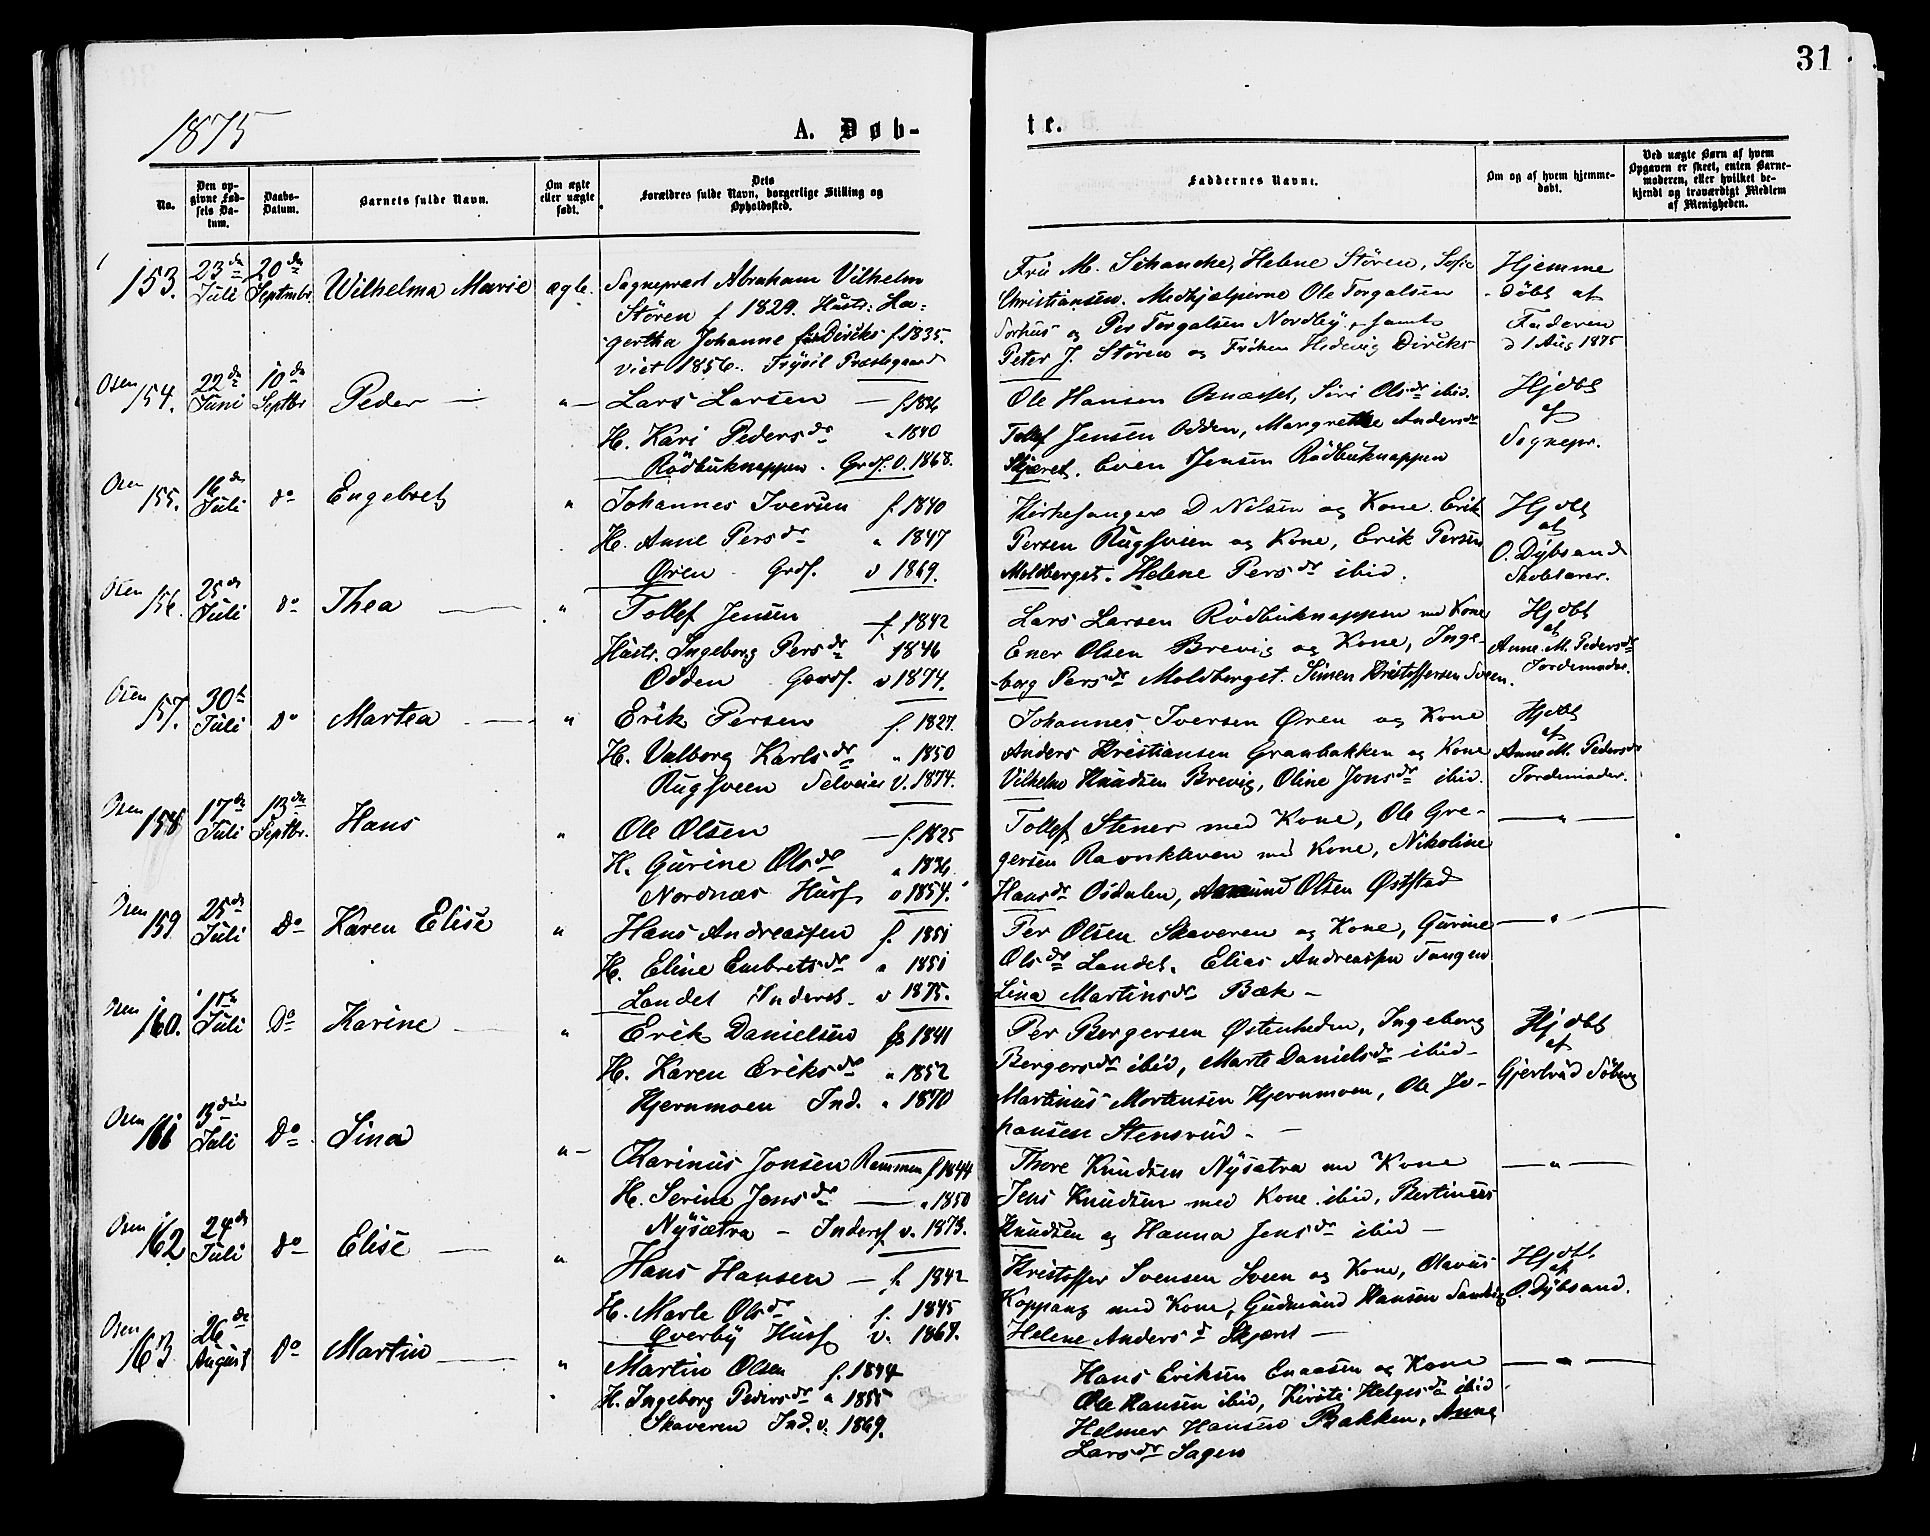 31
1875
A. Døb-
te.
No.
Den opgivne Fødsels Datum.
Daabs-Datum.
Barnets fulde Navn.
Om ægte eller uægte født.
Dets Forældres fulde Navn, borgerlige Stilling og Opholdssted.
Faddernes Navne.
Om og af hvem hjemmedøbt.
Ved uægte Børn af hvem Opgaven er skeet, enten Barnemoderen, eller hvilket bekjendt og troværdigt Medlem af Menigheden.
153. 23de Juli 20de Septembr. Wilhelma Marie ægte.
Sognepræst Abraham Vilhelm
Stören f 1829. Hustr: Ha-
gertha Johanne før Diriks f. 1835.
viet 1856. Trysil Præstegaard
Fru M. Schancke, Helene Stören, Sofie
Christiansen. Medhjælperne Ole Torgalsen
Sorhus og Per Torgalsen Nordby, samt
Peter J. Stören og Frøken Hedevig Diriks
Hjemme
døbt af
Faderen
d 1 Aug 1875
Osen 154. 22de Juni 10de Septbr Peder "
Lars Larsen — f. 1836
H. Kari Pedersdr " 1840
Rödbuknappen. Grdf. v. 1868.
Ole Hansen Osnæsset, Siri Olsdr ibid.
Tollef Jensen Odden, Margrethe Andersdr
Skjæret. Even Jensen Rödbuknappen
Hjdbt
af
Sognepr.
Osen 155. 16de Juli do Engebret "
Johannes Iversen f. 1840
H. Anne Persdr " 1847
Øren. Grdf. v 1869.
Kirkesanger D Nilsen og Kone. Erik
Persen Rugsveen og Kone, Erik Persen
Moldberget. Helene Persdr ibid.
Hjdbt
af
O. Dybsand
Skolelærer.
Osen 156. 25de Juli do Thea "
Tollef Jensen f. 1842
Hustr. Ingeborg Persdr 1846
Odden Gaardf. v 1874.
Lars Larsen Rödbuknappen med Kone
Ener Olsen Brevig og Kone, Inge-
borg Persdr Moldberget. Simen Kristoffersen Sveen.
Hjdbt
af
Anne M. Pedersdr
Jordemoder.
Osen 157. 30te Juli do Martea "
Erik Persen f. 1827.
H. Valborg Karlsdr " 1850
Rugsveen Selveier v. 1874.
Johannes Iversen Øren og Kone
Anders Kristiansen Graabakken og Kone
Vilhelm Knudsen Brevig, Oline Jonsdr ibid.
Hjdbt
af
Anne M. Pedersdr
Jordemoder.
Osen 158 17de Juli 13de Septbr. Hans "
Ole Olsen — f. 1825
H. Gurine Olsdr " 1836.
Nordnæs Husf v 1854.
Tollef Stener med Kone, Ole Gre-
gersen Ravnkleven med Kone, Nikoline
Hansdr Osdalen, Amund Olsen Øststad
— " —
Osen 159 25de Juli Do Karen Elise "
Hans Andreassen f. 1851
H. Eline Embretsdr " 1851
Landet Inderst. v 1875.
Per Olsen Skaveren og Kone, Gurine
Olsdr Landet. Elias Andreassen Tangen
Lina Martinsdr Bæk —
— " —
Osen 160. Juli Do Karine "
Erik Danielsen 1841
H. Karen Eriksdr " 1852
Kjernmoen Ind. " 1870
Per Bergersen Østenheden, Ingeborg
Bergersdr ibid, Marte Danielsdr ibid.
Martinus Mortensen Kjernmoen, Ole Jo-
hansen Stensrud.
Hjdbt
af
Gjertrud Söberg
Osen 161 13de Juli Do Lina "
Karinus Jonsen Rammen f 1844
H. Serine Jensdr — " 1850
Nysætra — Inderst v. 1873.
Thore Knudsen Nysætra med Kone
Jens Knudsen med Kone ibid, Bertinus
Knudsen og Hanna Jensdr ibid —
— " —
Osen 162 24de Juli do Elise "
Hans Hansen — f. 1842
H. Marte Olsdr f. 1845
Overby Husf v. 1867.
Kristoffer Svensen Sveen og Kone, Olavus
Koppang med Kone, Gudmund Hansen
Helene Andersd Skjæret —
Hjdbt.
af
O. Dybsand.
Osen 163 26de August Do Martin "
Martin Olsen f. 1844
H. Ingeborg Pedersdr " 1855
Skaveren Ind. v. 1869.
Hans Eriksen Enaasen og Kone
Ole Hansen ibid, Kirsti Helgesdr ibid
Helmer Hansen Bakken, Anne
Larsdr Sagen
— " —